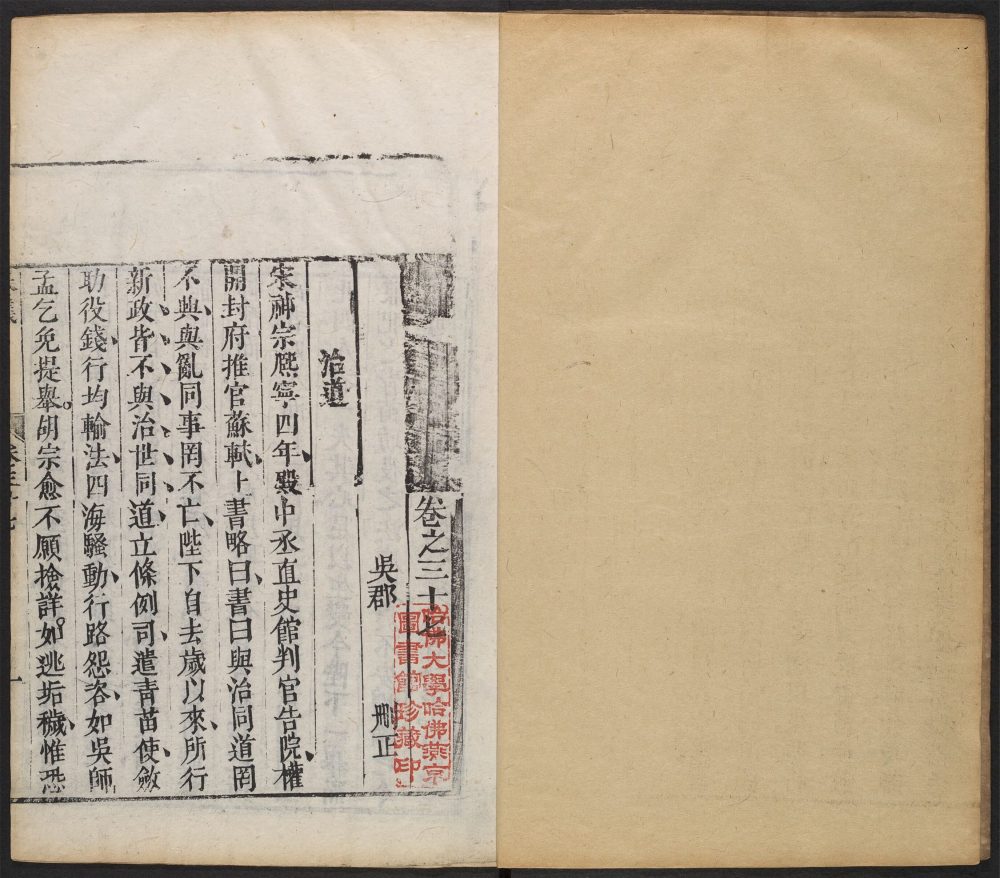 卷之三十
吳郡 刪正
哈佛大學哈佛燕京
圖書館珍藏印
治道
宋神宗熙寧四年殿中丞直史館判官告院權
開封府推官蘇軾上書略曰書曰與治同道罔
不興與亂同事罔不亡陛下自去歲以來所行
新政皆不與治世同道立條例司遣青苗使斂
助役錢行均輸法四海騷動行路怨咨如吳師
孟乞免提舉胡宗愈不願撿詳如逃垢穢惟恐
卷三十七
一